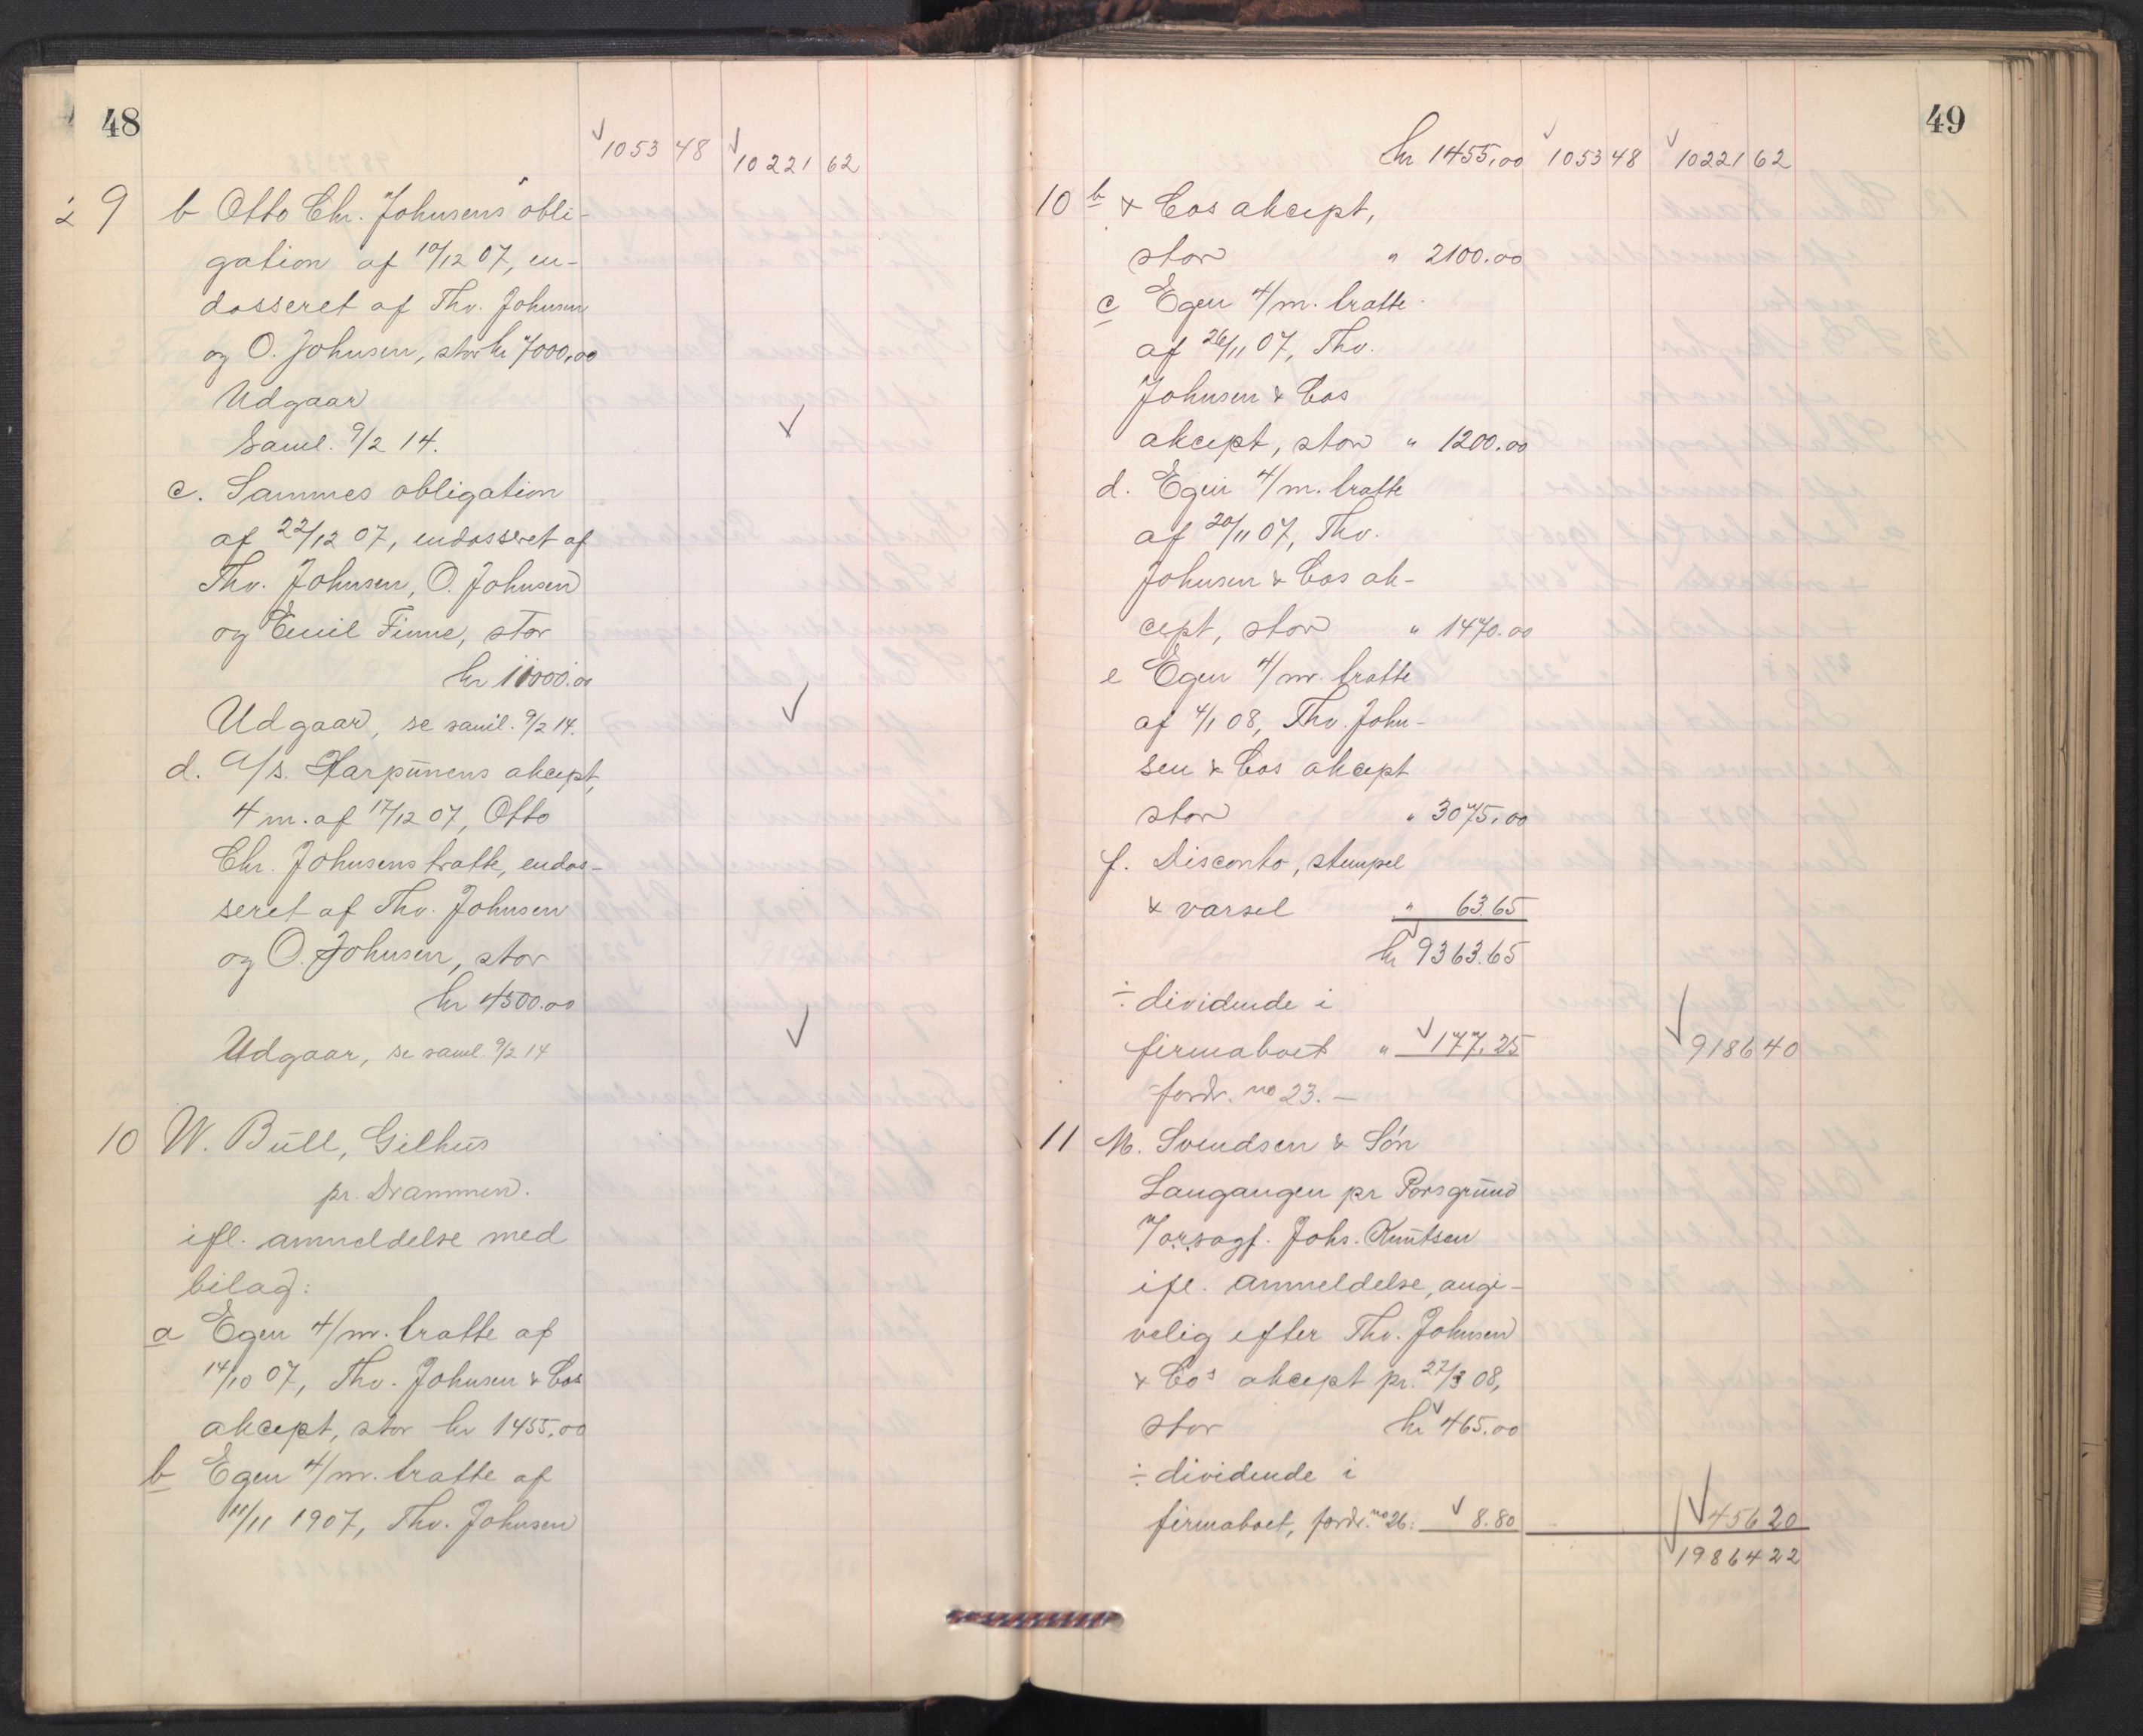 48
1053 48 10221 62
9 b Otto Chr. Johnsens obli-
gation af 10/12 07, en-
dosseret af Thv. Johnsen
og O. Johnsen, stor kr 7000,00
Udgaar
Saml. 9/2 14.
c. Sammes obligation
af 22/12 07, endosseret af
Thv. Johnsen, O. Johnsen
og Emil Finne, stor
kr 11000.00
Udgaar, se saml. 9/2 14.
d. A/s. Harpunens akcept,
4 m. af 17/12 07, Otto
Chr. Johnsens tratte, endos-
seret af Thv. Johnsen
og O. Johnsen, stor
kr 4500.00
Udgaar, se saml. 9/2 14
10 W. Bull, Gilhus
pr. Drammen.
ifl. anmeldelse med
bilag:
a Egen 4/m. tratte af
14/10 07, Thv. Johnsen & Cos
akcept, stor kr 1455,00
b Egen 4/m. tratte af
11/11 1907, Thv. Johnsen
49
kr 1455,00 1053 48 10221 62
10 b & Cos akcept,
stor " 2100.00
c Egen 4/m. tratte
af 26/11 07, Thv.
Johnsen & Cos
akcept, stor " 1200.00
d. Egen 4/m. tratte
af 20/11 07, Thv.
Johnsen & Cos ak-
cept, stor " 1470.00
e Egen 4/m. tratte
af 4/1 08, Thv. John-
sen & Cos akcept
stor " 3075,00
f. Disconto, stempel
& varsel " 63.65
kr 9363.65
÷ dividende i
firmaboet " 177.25 9186 40
fordr. no 23. —
11 M. Svendsen & Søn
Langangen pr Porsgrund
/orsagf. Johs. Knutsen
ifl. anmeldelse, angi-
velig efter Thv. Johnsen
& Cos akcept pr. 27/3 08,
stor kr 465.00
÷ dividende i
firmaboet, fordr. no 26: 8.80 456 20
19864 22